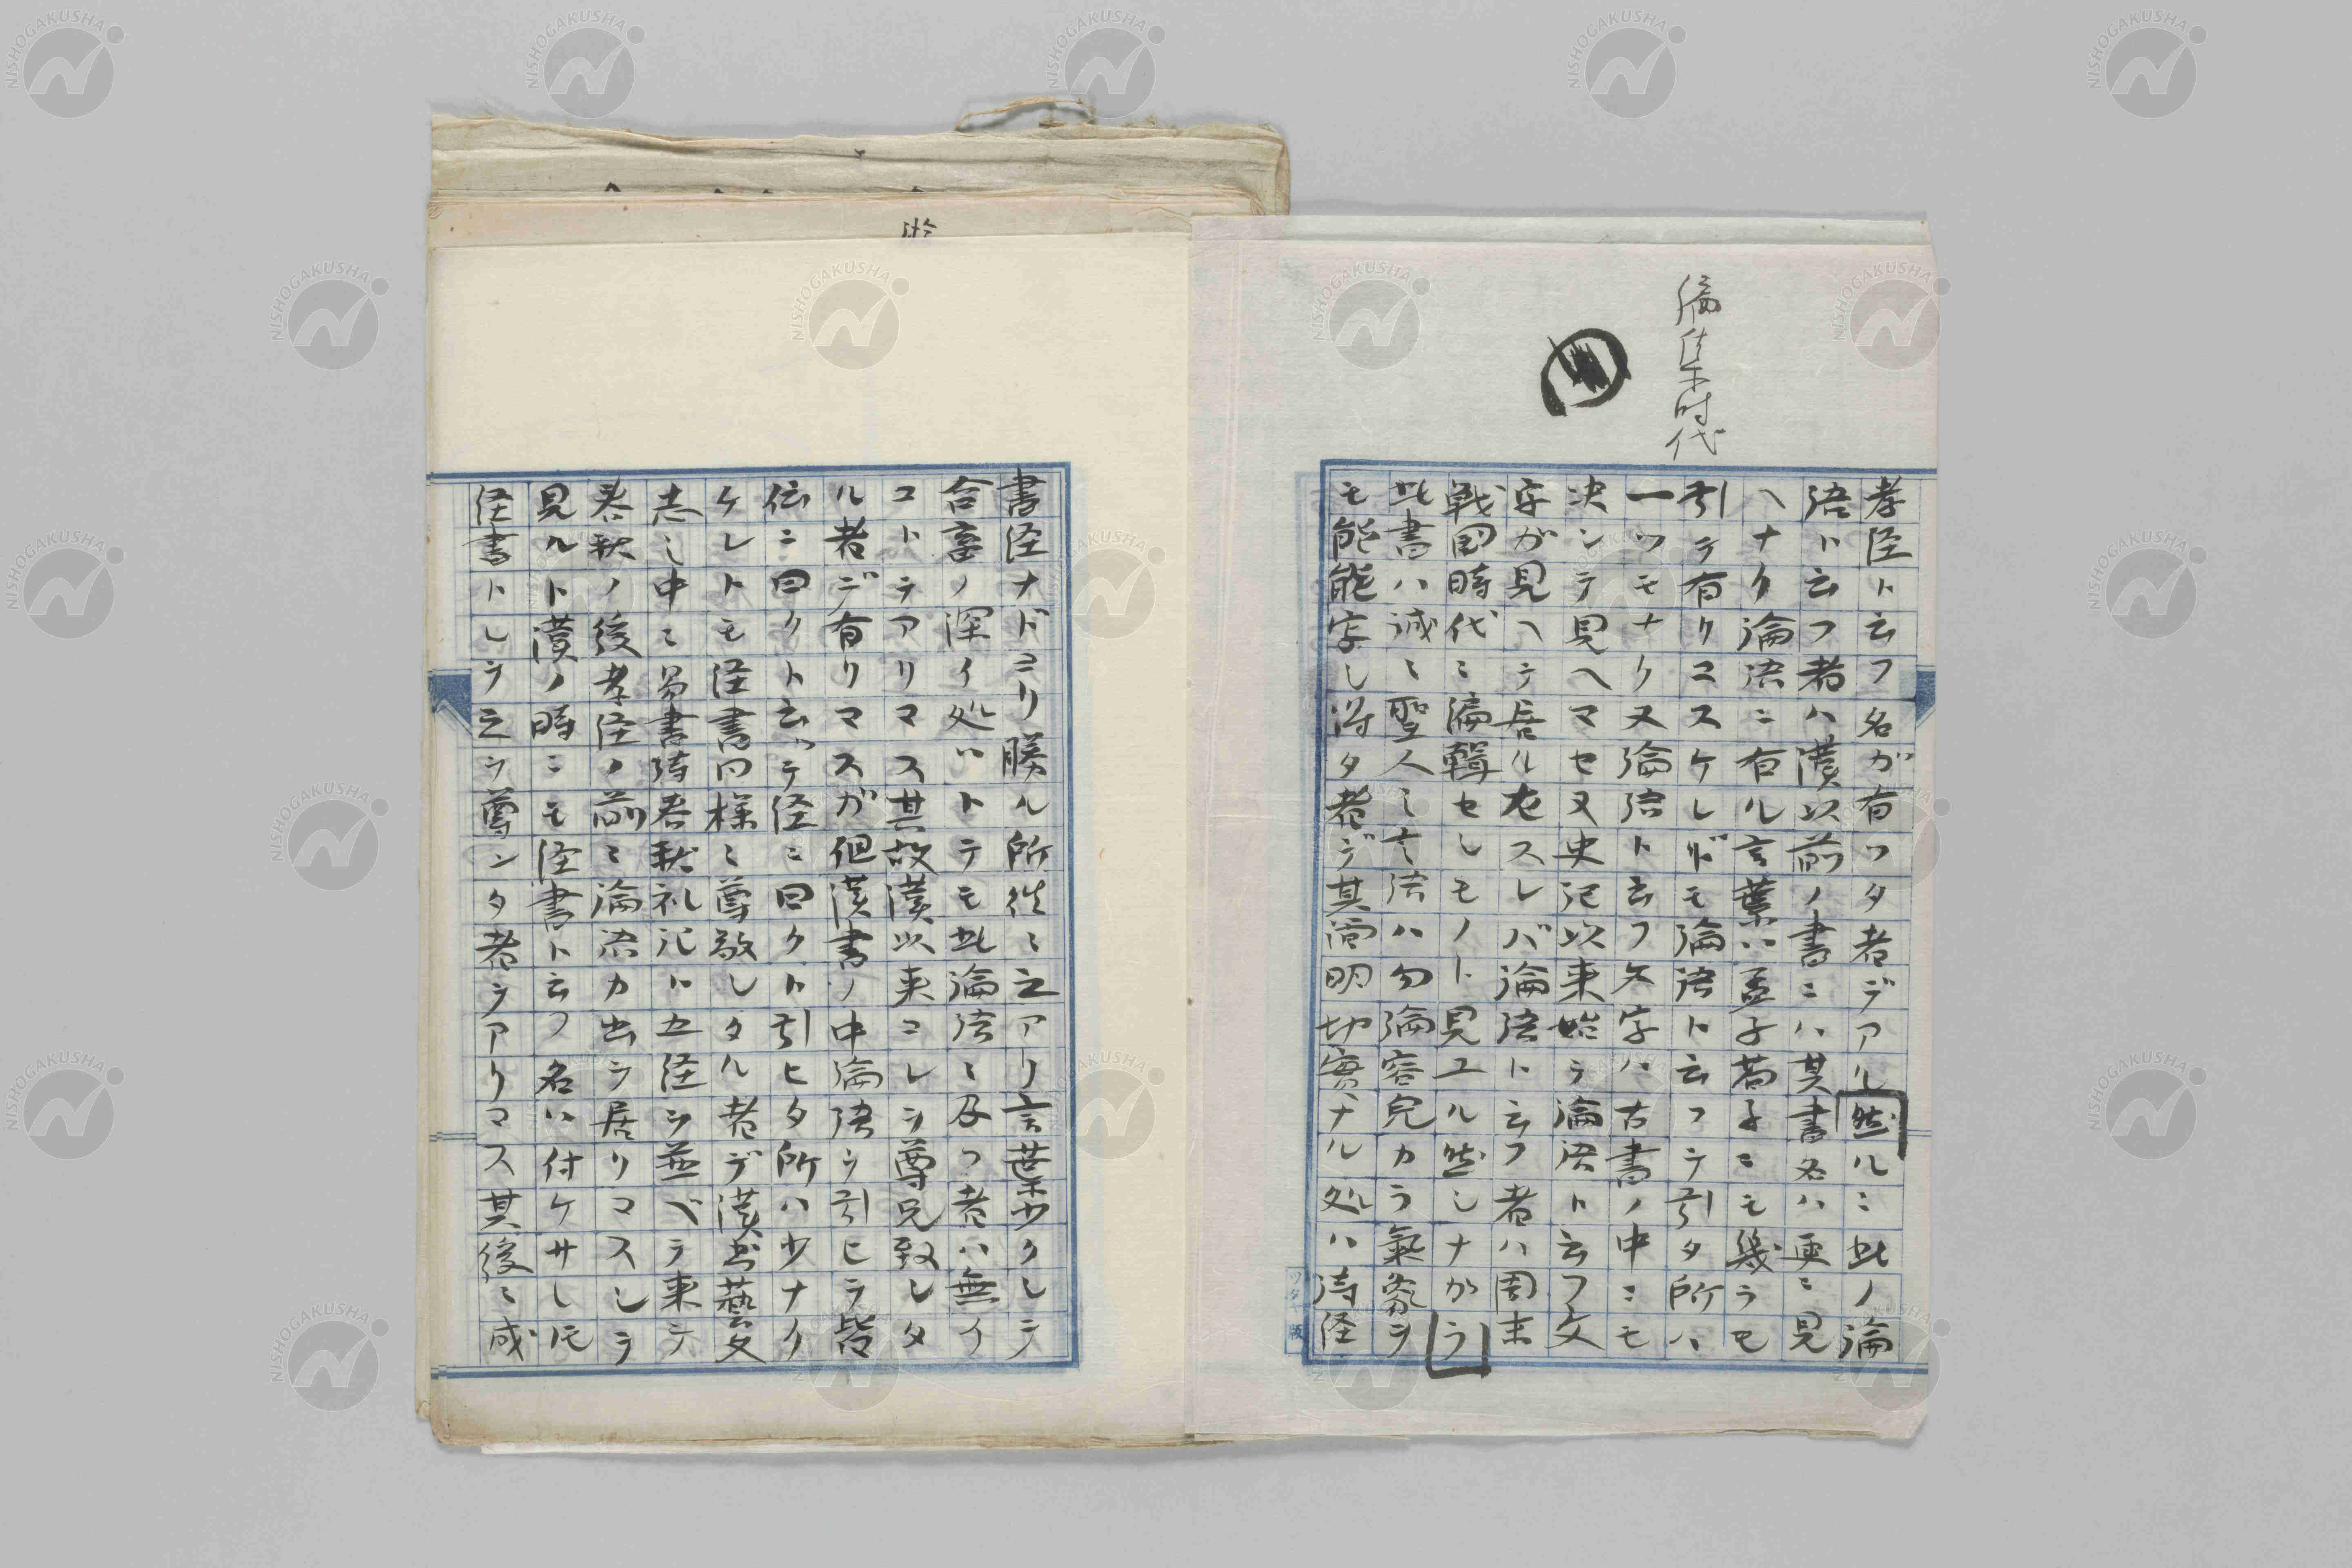 編集時代
孝経ト云フ名ガ有ツタ者デアル然ルニ此ノ論
語ト云フ者ハ漢以前ノ書ニハ其書名ハ更ニ見
ヘナク論語ニ有ル言葉ハ孟子荀子ニモ幾ラモ
引テ有リマスケレドモ論語ト云フテ引タ所ハ
一ツモナク又論語ト云フ文字ハ古書ノ中ニモ
决シテ見ヘマセヌ史記以来始テ論語ト云フ文
字ガ見ヘテ居ル左スレバ論語ト云フ者ハ周末
戦国時代ニ編輯セシモノト見ユル然シナガラ
此書ハ誠ニ聖人ノ言語ハ勿論容皃カラ氣象ヲ
モ能能写シ得タ者デ其簡明切實ナル処ハ詩経
書経ナドヨリ勝ル所徃々之アリ言葉少クシテ
含蓄ノ深イ処ハトテモ此論語ニ及フ者ハ無イ
コトテアリマス其故漢以来コレヲ尊兄致シタ
ル者デ有リマスガ但漢書ノ中論語ヲ引ヒテ皆
伝ニ曰クト云ッテ経ニ曰クト引ヒタ所ハ少ナイ
ケレトモ経書同様ニ尊敬シタル者デ漢書藝文
志ノ中ニ易書詩春秋礼記ト五経ヲ並ベテ来テ
春秋ノ後孝経ノ前ニ論語カ出テ居リマスシテ
見ルト漢ノ時ニモ経書ト云フ名ハ付ケサレ𪜈
経書トシテ之ヲ尊ンタ者テアリマス其後ニ成